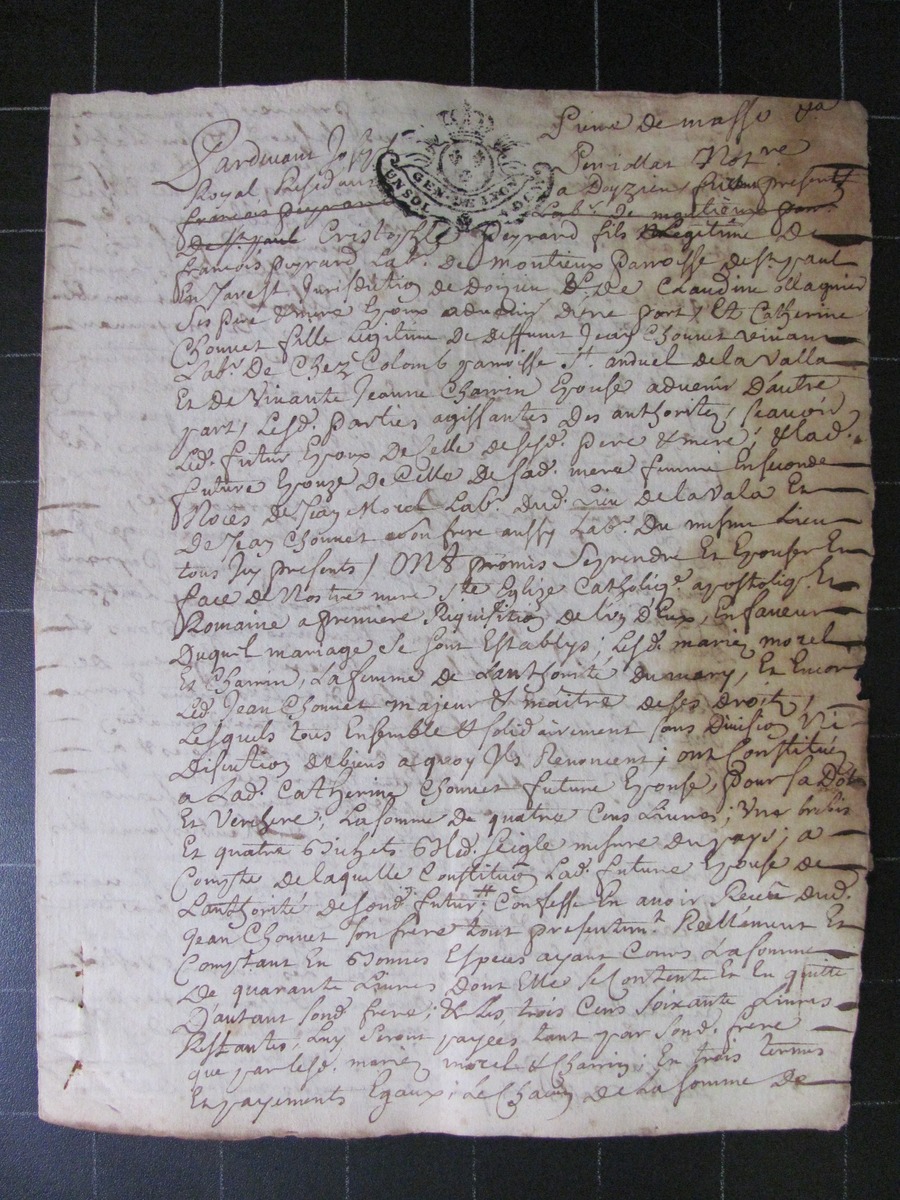 Pardevant Joseph Perrillat Not.re
GEN. DE LYON
UN SOL
Royal Residant a Doyzieu, furent presents
françois peyrard Lab.r de montieux parr.
de St paul Cristophle Peyrard fils Legitime de
françois peyrard Lab.r de montieux parroisse de St paul
En Jarest Jurisdiction de Doyzieu Et De Claudine ollagnier
Ses pere & mere Epoux advenir d'une part, Et Catherine
Chouvet fille Legitime de deffunt Jean Chouvet vivant
Lab.r De Chez Colomb parroisse St anduel de la Valla
Et de Vivante Jeanne Charrin Epouse advenir D'autre
part, Lesd. parties agissantes des authorites, scavoir
Led. futur Epoux De Celle de sesd. pere & mere; & Lad.
future Epouze de Celle De sad. mere femme En seconde
Noces de Jean Morel Lab.r dud. Lieu de la Vala Et
De Jean Chouvet son frere aussy Lab.r Du mesme Lieu
tous Icy presents, ONt promis Se prendre Et Epouser En
face de Nostre mere Ste Eglize Catholiq.e apostoliq. Et
Romaine a premiere Requisition de l'un d'Eux, En faveur
Duquel mariage se sont Establys; Lesd. mariez morel
Et Charrin, La femme de L'authorité Du mary, Et Encor
Led. Jean Chouvet majeur & maitre de ses droits,
Lesquels tous Ensemble & solidairement sans Division Ni
Discution de biens a quoy Ils Renoncent; ont Constitué
a Lad. Catherine Chouvet future Epouse, pour sa Dot
Et Verchere; La somme de quatre Cens Livres; Une brebis
Et quatre Bichets Bled seigle mesure du pays; a
Compte de laquelle Constitution Lad. future Epouse de
L'authorité de sond. futur Confesse En avoir Receu dud.
Jean Chouvet son frere tout presentem.t Reellement Et
Comptant En Bonnes Especes ayant Cours La somme
De quarante Livres dont Elle se Contente Et En quitte
D'autant sond. frere; & Les trois Cens soixante Livres
Restantes, Luy seront payees tant par sond. frere
que par lesd. mariez morel & Charrin; En trois termes
Et payements Egaux; Le Chacun de La somme de